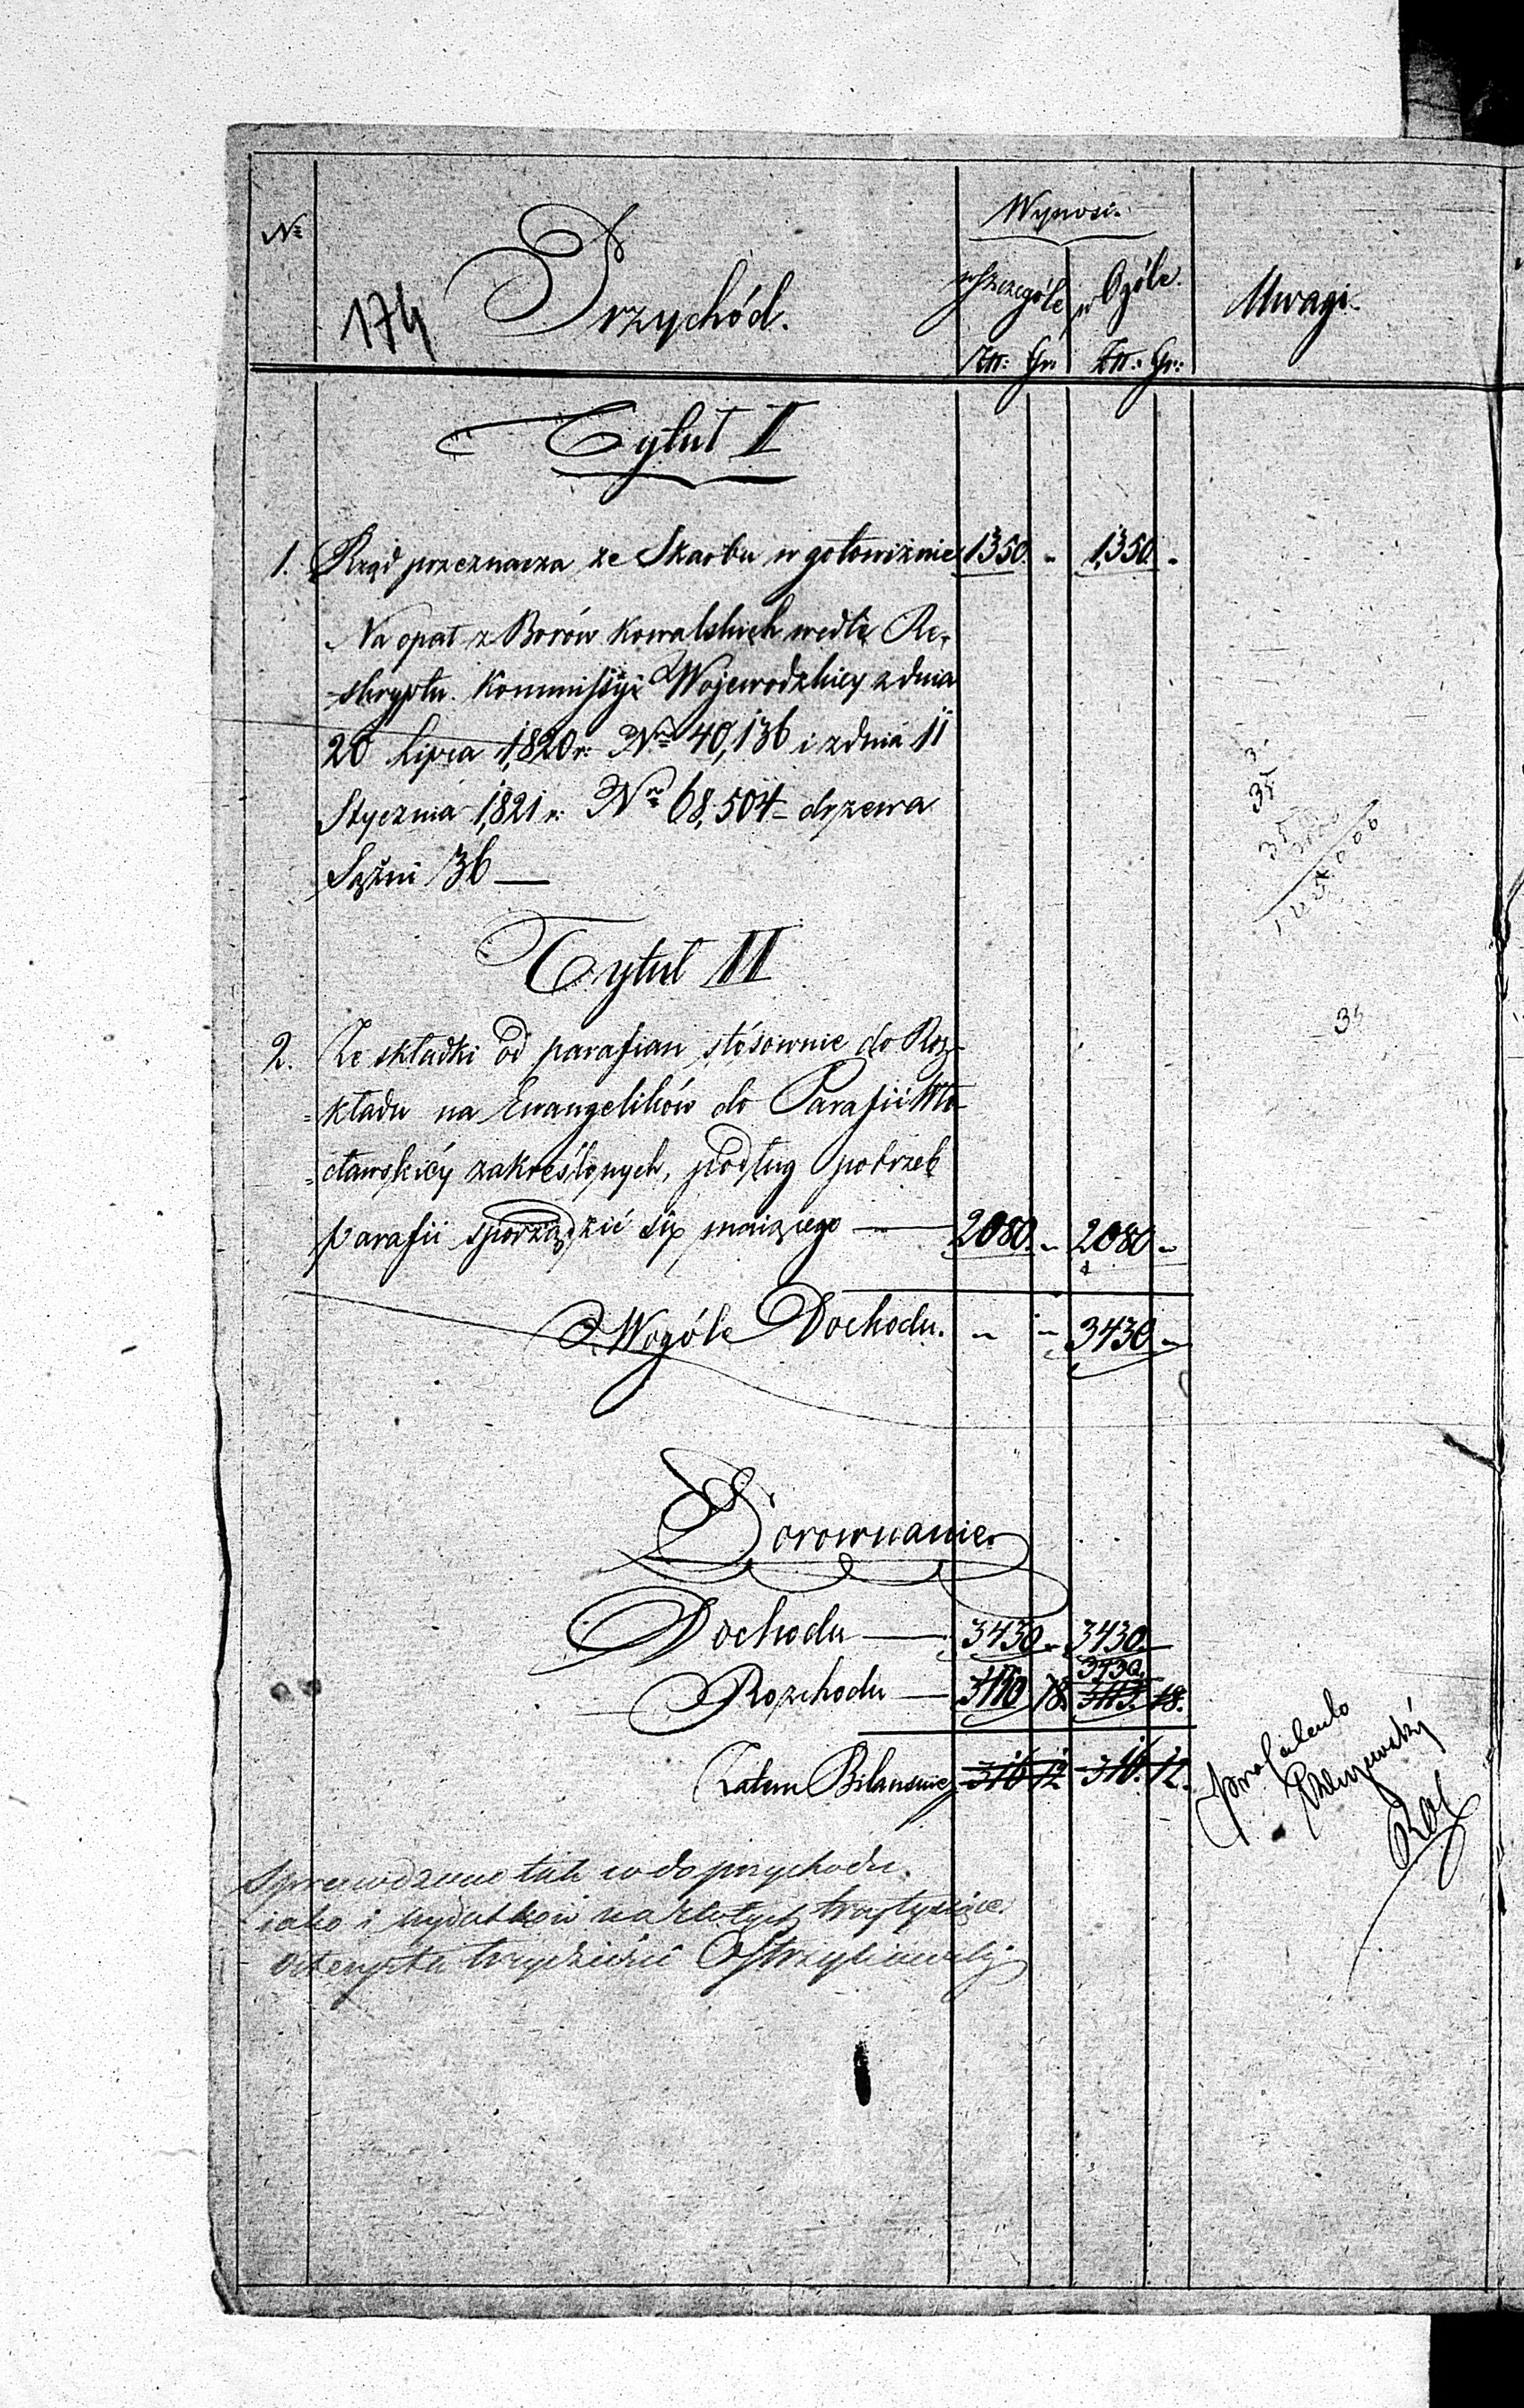 Wynosi.
№ 174 Przychód. w szczególe w Ogóle. Uwagi.
Złt: Gr. Złt: Gr:
Tytuł I
1. Rząd przeznacza ze Skarbu w gotowiźnie 1350. „ 1,350. „
Na opał z Borów Kowalskich wedle Re-
skryptu Kommissyi Wojewodzkiey z dnia
20 Lipca 1,820 r: Nro 40,136 i z dnia 11
Stycznia 1,821 r: Nro 68,504 drzewa
Sążni 36 —
Tytuł II
2. Ze składki od parafian stósownie do Roz-
=kładu na Ewangelików do Parafii Wło-
=cławskiéy zakreślonych, podług potrzeb
parafii sporządzić się maiącego — 2080. „ 2080 „
Wogóle Dochodu. „ „ 3430 „
Porownanie.
Dochodu — 3430 „ 3430. —
3430.
Rozchodu — 3113 18. 3113. 18.
Zatem Bilansuie 316 12 316. 12.
Sprawdzono tak co do przychodu.
iako i wydatków na złotych trzy tysiące
czterysta trzydzieści
pro Calculo